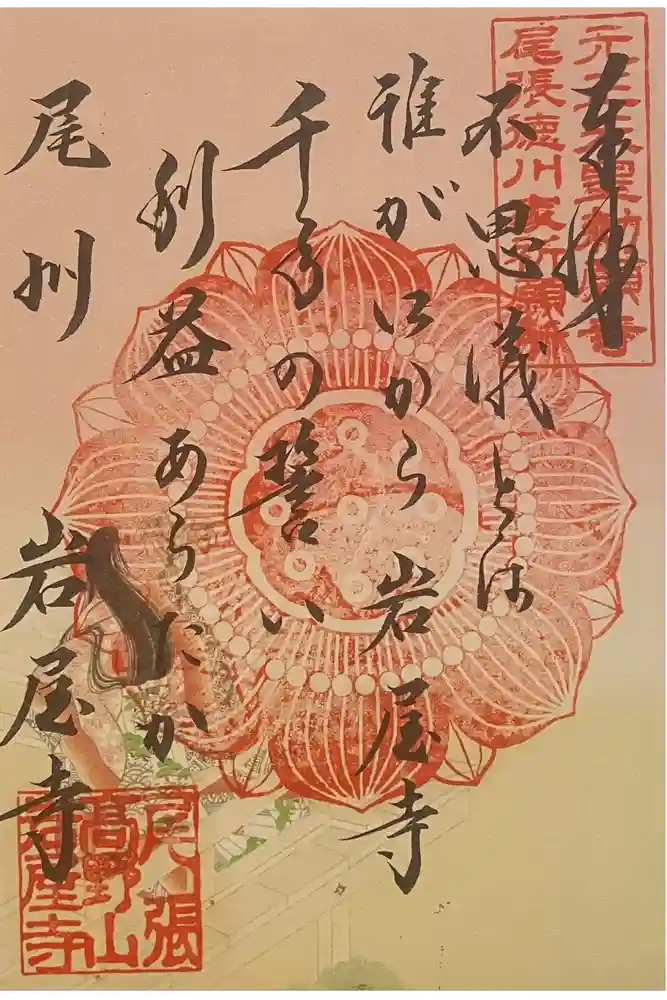 奉拝
尾張徳川家祈願所
不思議とは
誰が
から岩屋寺
千手の誓い
利益あらたか
尾州 岩屋寺
尾張
高野山
岩屋寺